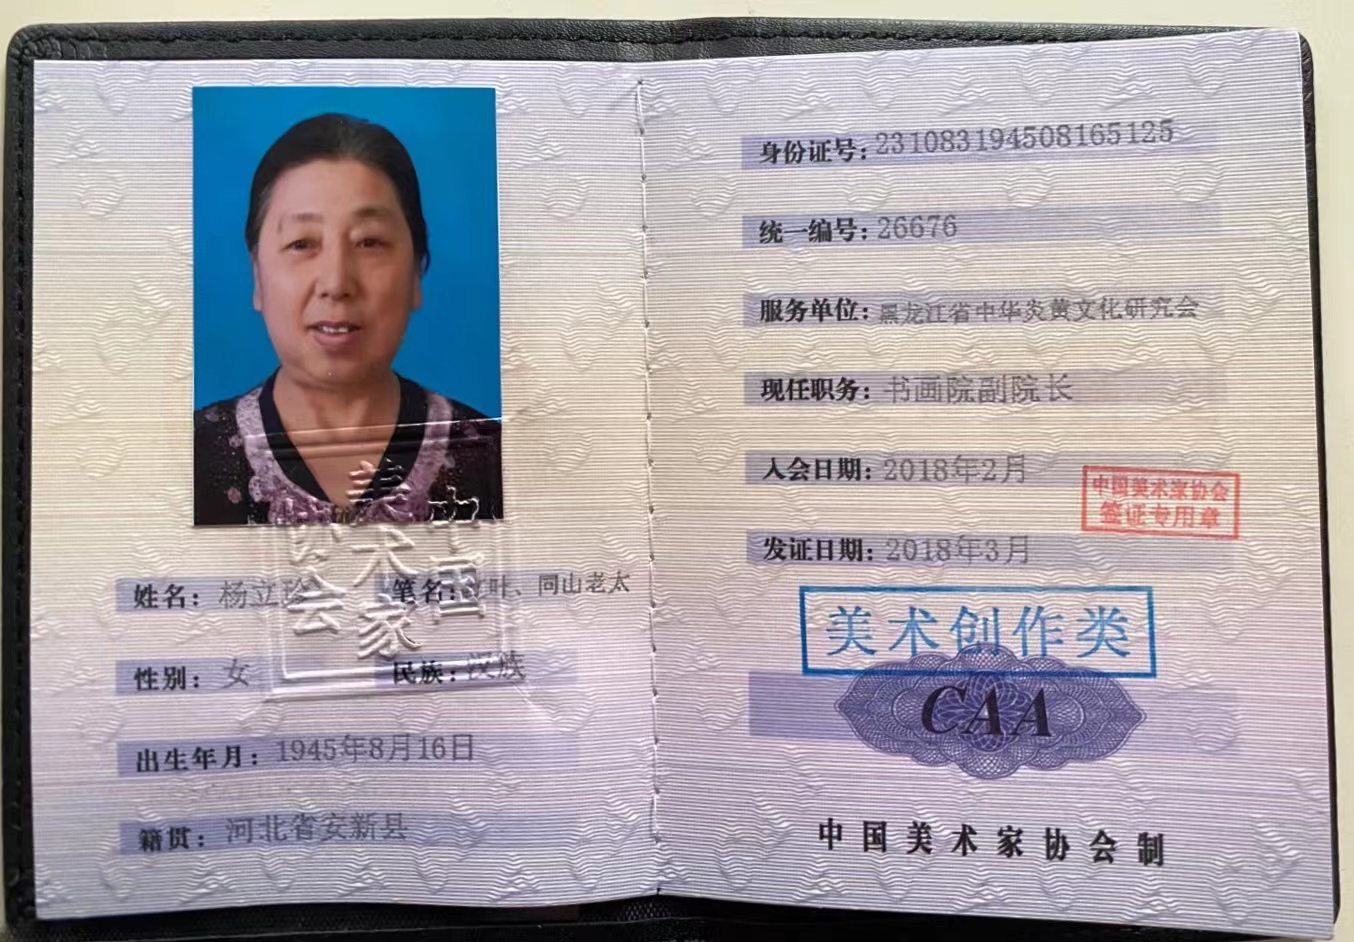 中国
美术家
协会
姓名：杨立珍
笔名：叶、同山老太
性别：女
民族：汉族
出生年月：1945年8月16日
籍贯：河北省安新县
身份证号：231083194508165125
统一编号：26676
服务单位：黑龙江省中华炎黄文化研究会
现任职务：书画院副院长
入会日期：2018年2月
中国美术家协会
签证专用章
发证日期：2018年3月
美术创作类
CAA
中国美术家协会制